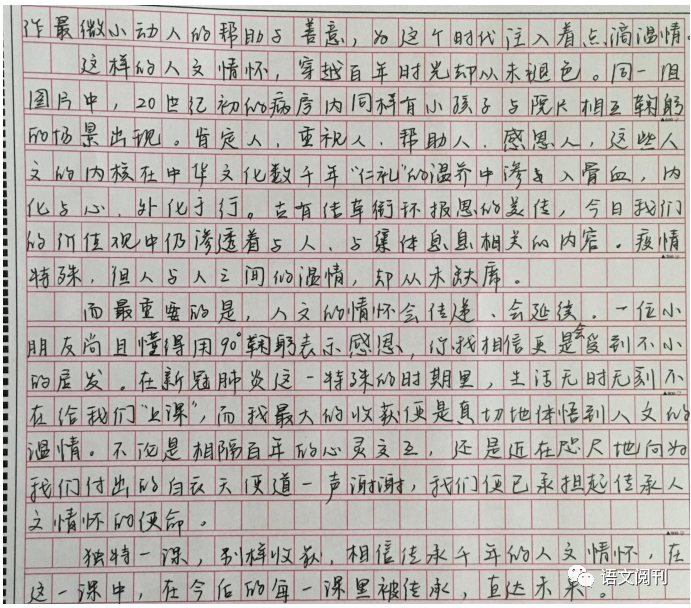 作最微小动人的帮助与善意，为这个时代注入着点滴温情。
这样的人文情怀，穿越百年时光却从未褪色。同一组
图片中，20世纪初的病房内同样有小孩子与院长相互鞠躬
的场景出现。肯定人，重视人，帮助人，感恩人，这些人
文的内核在中华文化数千年“仁礼”的温养中渗入骨血，内
化与心，外化于行。古有结草衔环报恩的美佳，今日我们
的价值观中仍渗透着与人、与集体息息相关的内容。疫情
特殊，但人与人之间的温情，却从未缺席。
而最重要的是，人文的情怀会传递、会延续。一位小
朋友尚且懂得用90°鞠躬表示感恩，你我相信更是会受到不小
的启发。在新冠肺炎这一特殊的时期里，生活无时无刻不
在给我们“上课”，而我最大的收获便是真切地体悟到人文的
温情。不论是相隔百年的心灵交互，还是近在咫尺地向为
我们付出的白衣天使道一声谢谢，我们便已承担起传承人
文情怀的使命。
独特一课，别样收获，相信传承千年的人文情怀，在
这一课中，在今后的每一课里被传承，直达未来。
语文阅刊